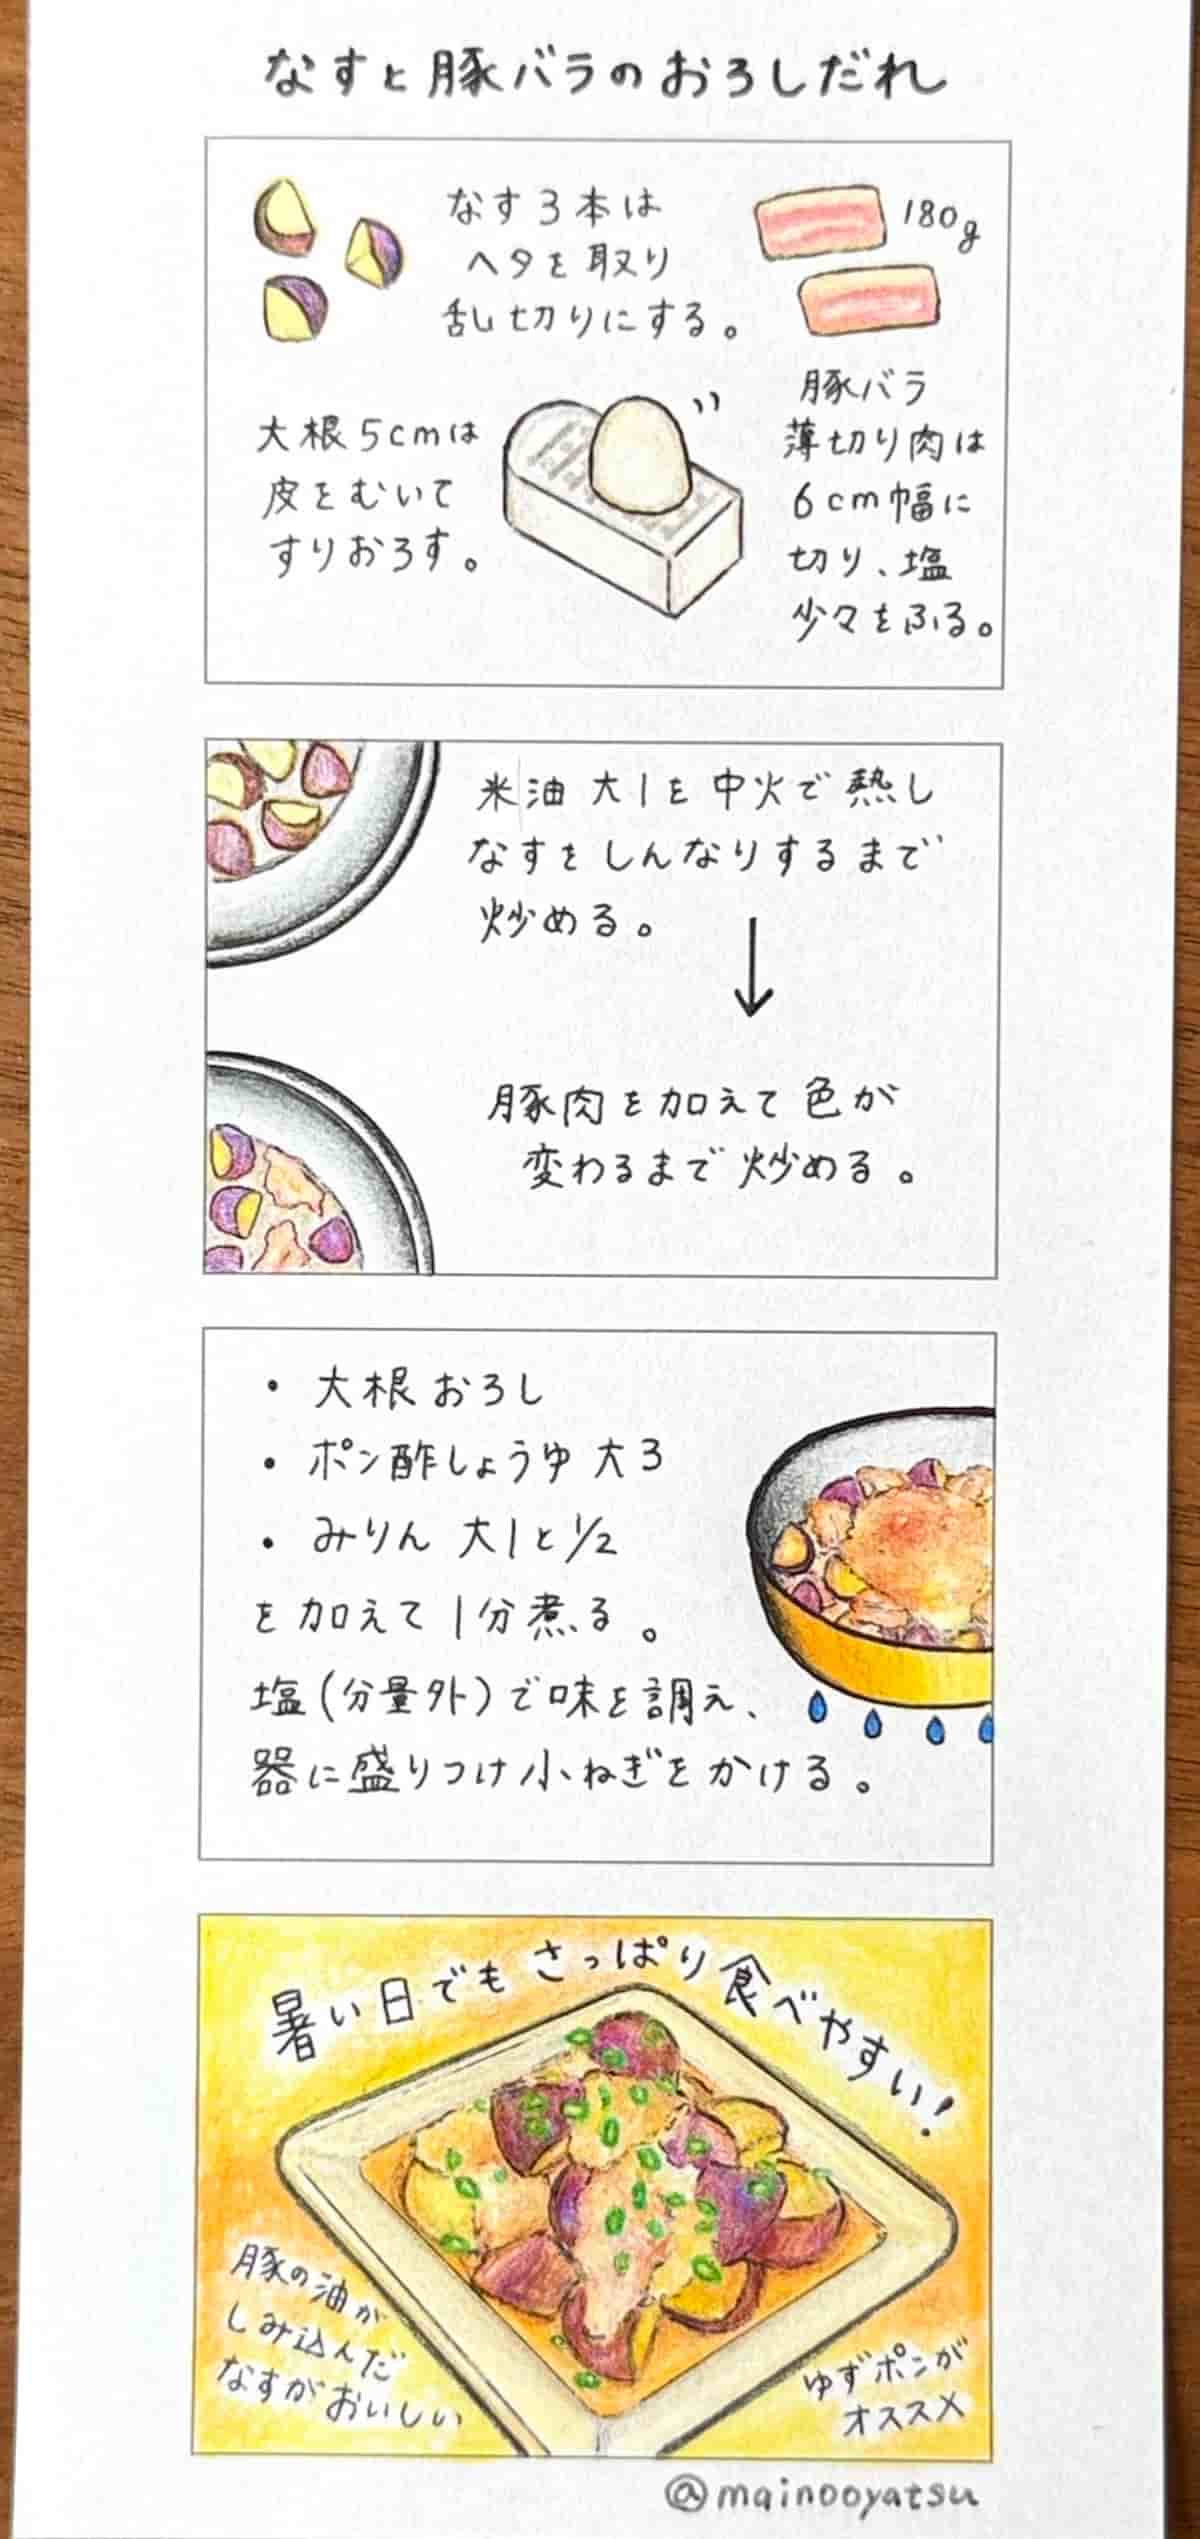 なすと豚バラのおろしだれ
なす3本は
ヘタを取り
乱切りにする。
180g
豚バラ
薄切り肉は
6cm幅に
切り、塩
少々をふる。
大根5cmは
皮をむいて
すりおろす。
米油 大1を中火で熱し
なすをしんなりするまで
炒める。
豚肉を加えて色が
変わるまで炒める。
・大根おろし
・ポン酢しょうゆ 大3
・みりん 大1と1/2
を加えて1分煮る。
塩(分量外)で味を調え、
器に盛りつけ小ねぎをかける。
暑い日でもさっぱり食べやすい!
豚の油が
しみ込んだ
なすがおいしい
ゆずポンが
オススメ
@mainooyatsu